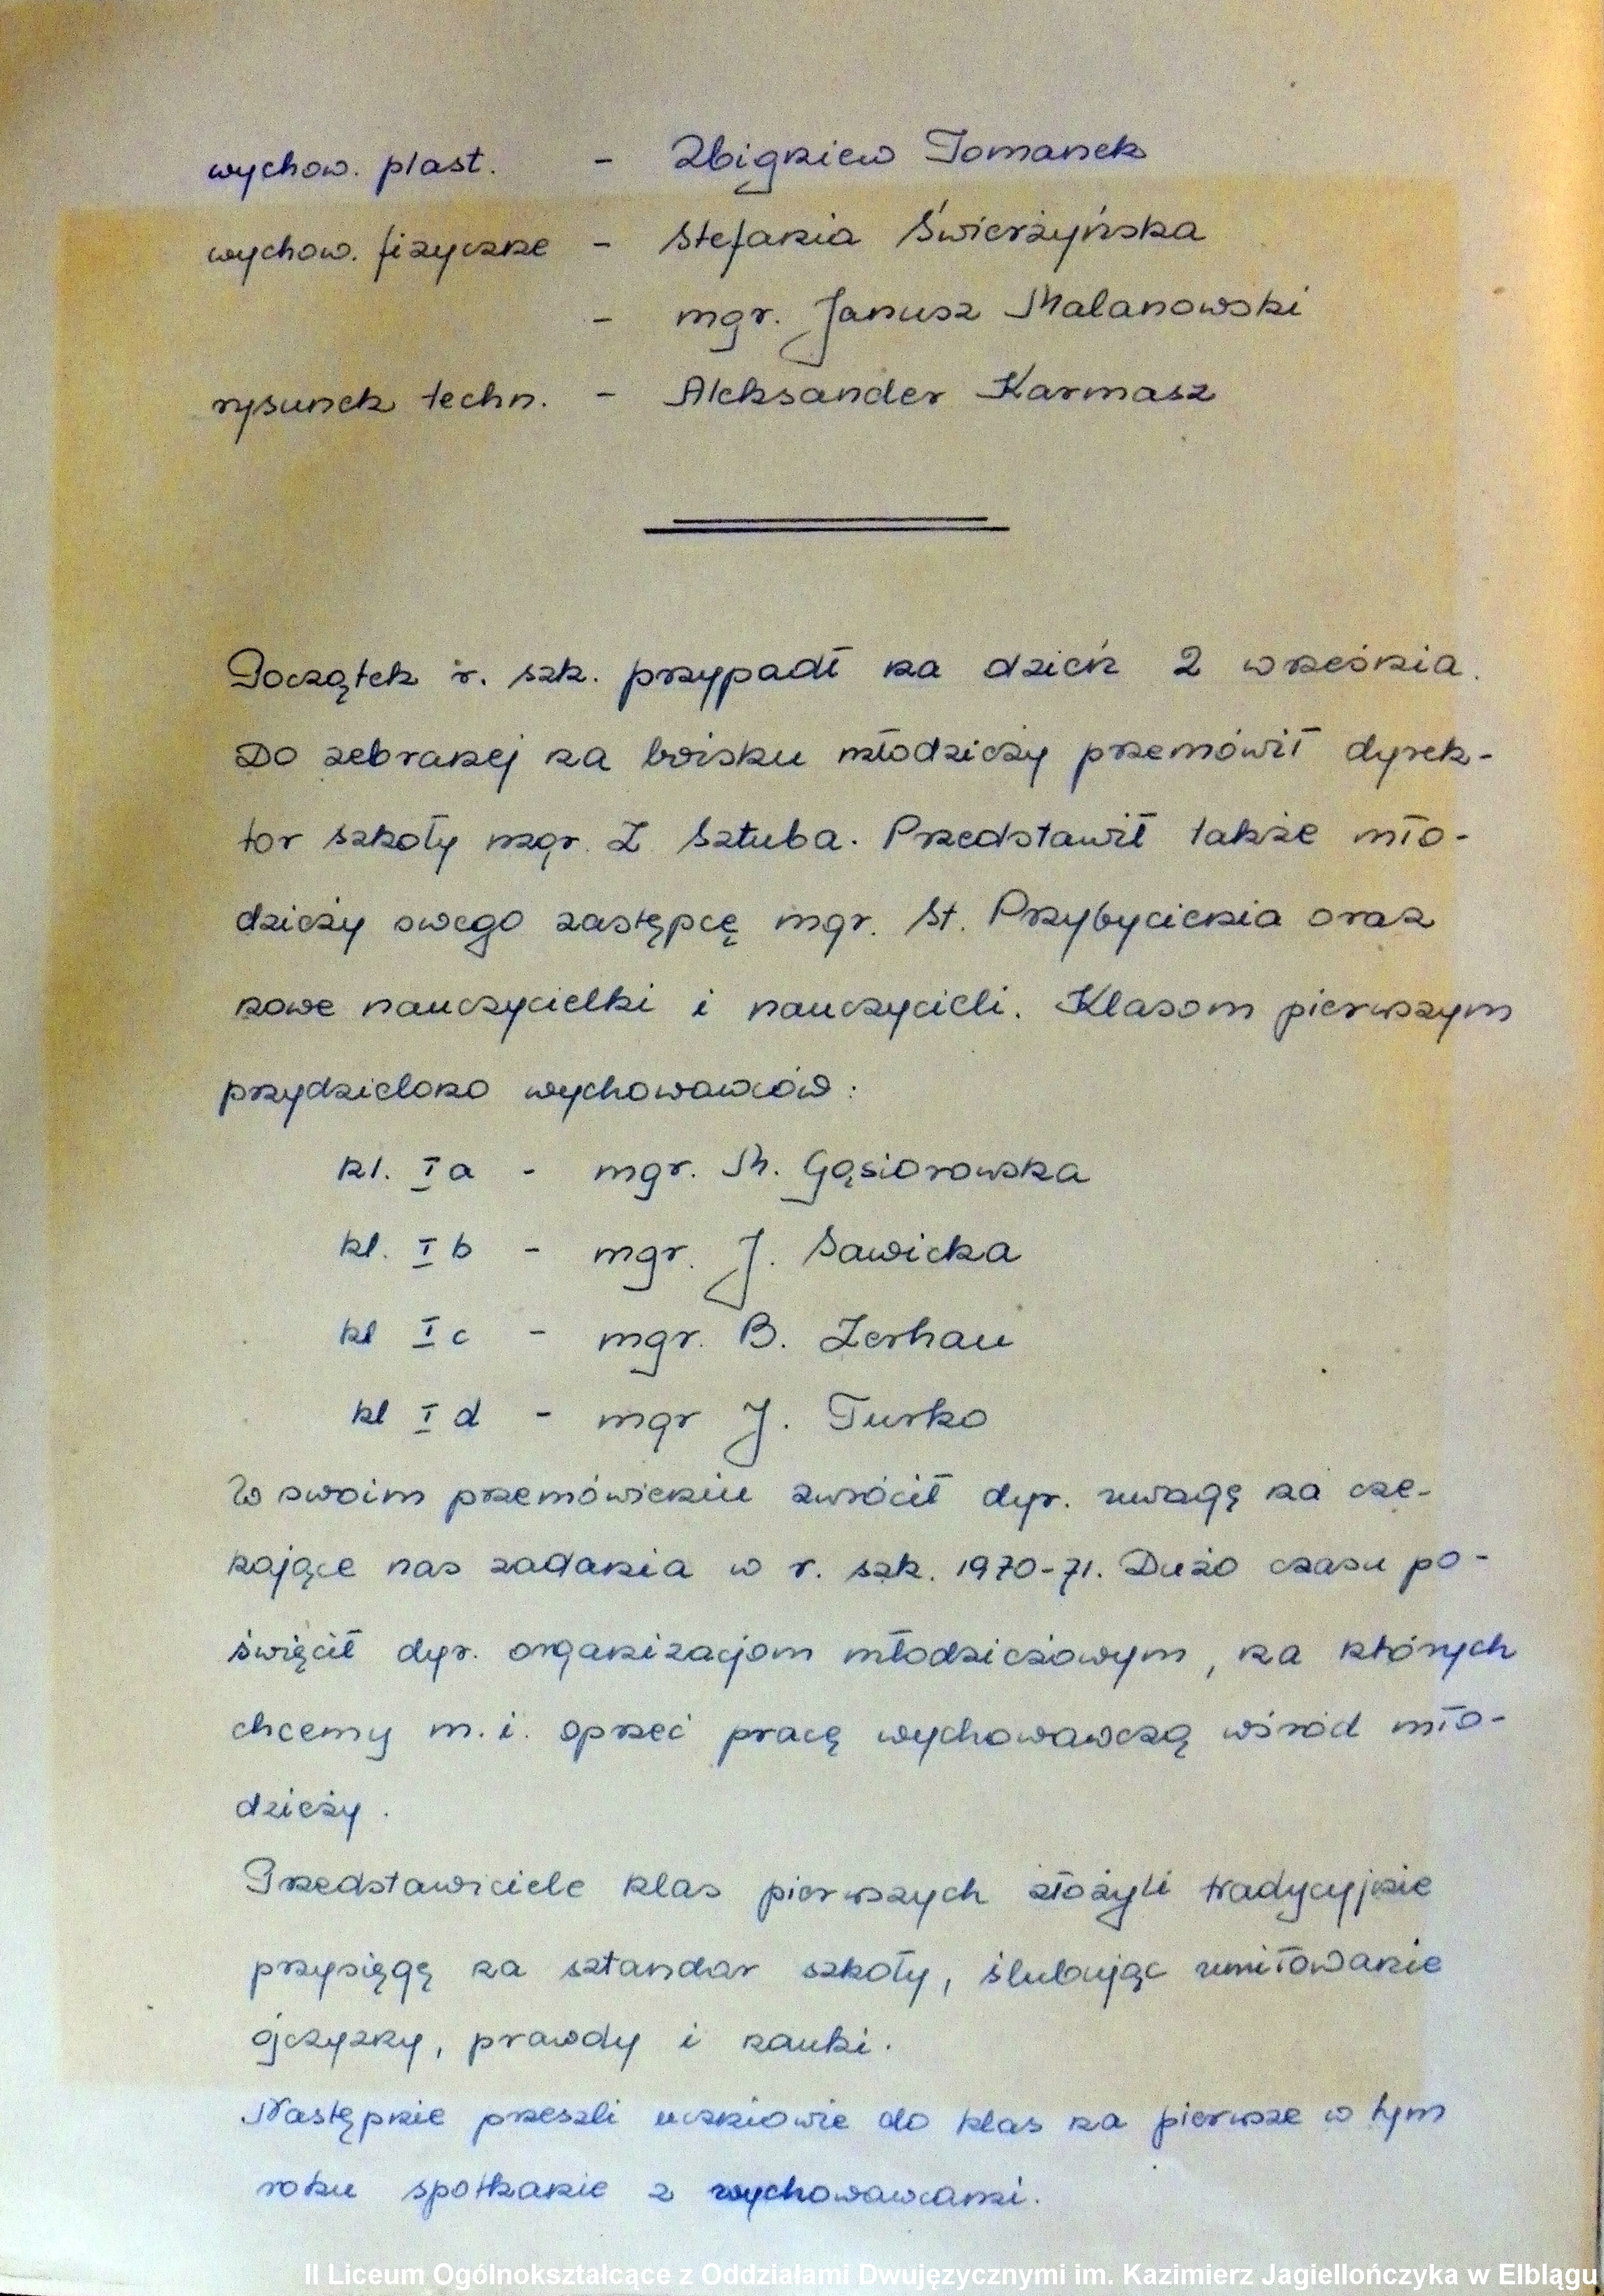 wychow. plast. - Zbigniew Tomanek
wychow. fizyczne - Stefania Świerżyńska
- mgr. Janusz Malanowski
rysunek techn. - Aleksander Karmasz
Początek r. szk. przypadł na dzień 2 września.
Do zebranej na boisku młodzieży przemówił dyrek-
tor szkoły mgr. Z Sztuba. Przedstawił także mło-
dzieży swego zastępcę mgr. St. Przybycienia oraz
nowe nauczycielki i nauczycieli. Klasom pierwszym
przydzielono wychowawców:
kl. I a - mgr. M. Gąsiorowska
kl. I b - mgr. J. Sawicka
kl I c - mgr. B. Zerhau
kl I d - mgr J. Turko
W swoim przemówieniu zwrócił dyr. uwagę na cze-
kające nas zadania w r. szk. 1970-71. Dużo czasu po-
święcił dyr. organizacjom młodzieżowym, na których
chcemy m. i. oprzeć pracę wychowawczą wśród mło-
dzieży.
Przedstawiciele klas pierwszych złożyli tradycyjnie
przysięgę na sztandar szkoły, ślubując umiłowanie
ojczyzny, prawdy i nauki.
Następnie przeszli uczniowie do klas na pierwsze w tym
roku spotkanie z wychowawcami.
II Liceum Ogólnokształcące z Oddziałami Dwujęzycznymi im. Kazimierz Jagiellończyka w Elblągu